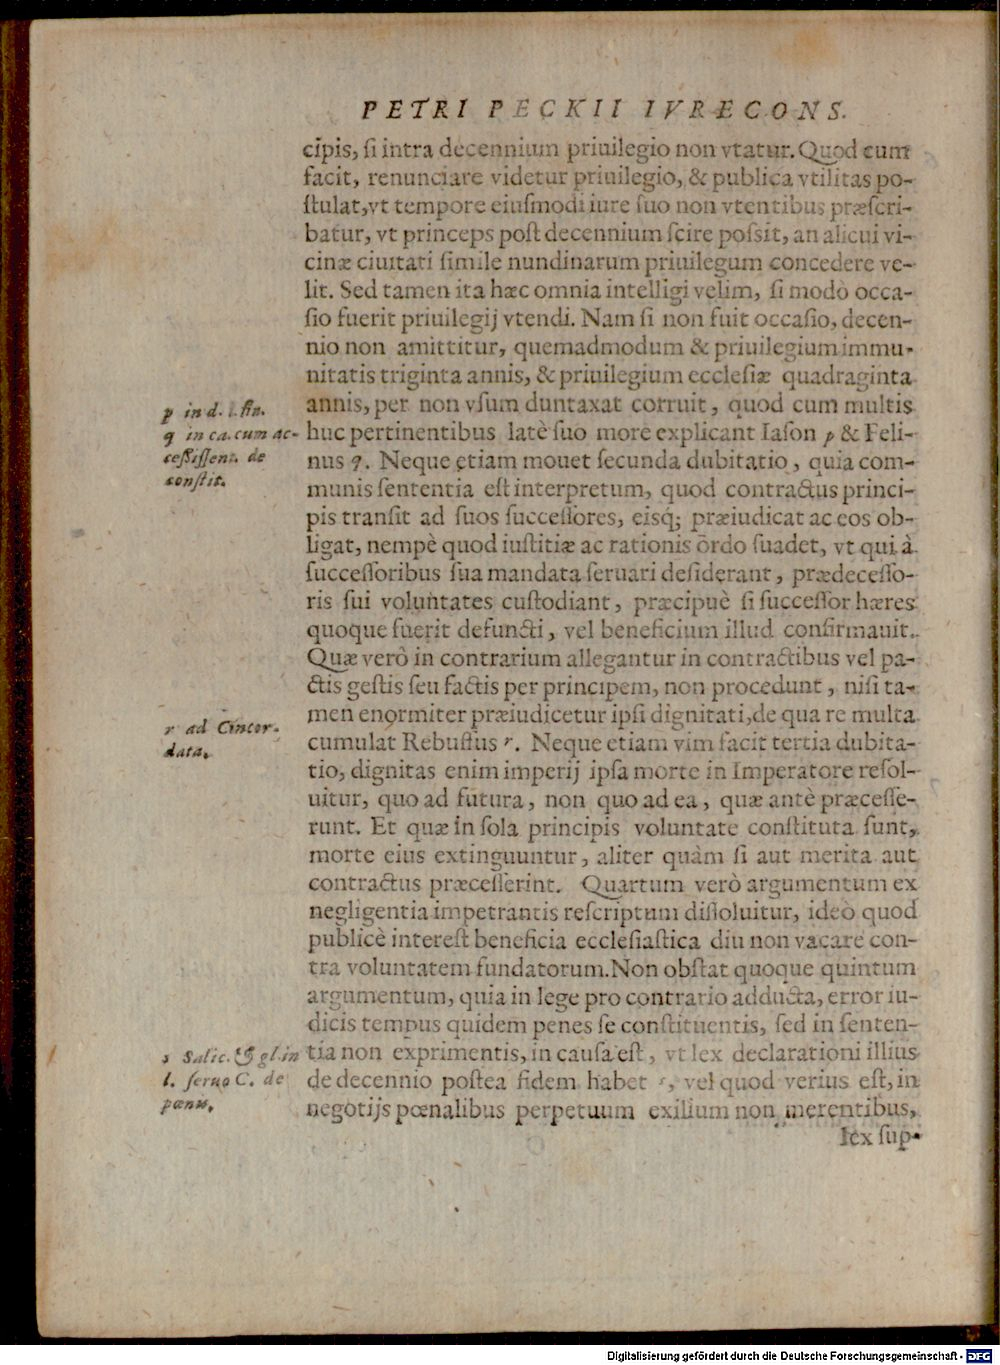 PETRI PECKII IVRÆCONS.
cipis, ſi intra decennium priuilegio non vtatur. Quod cum
facit, renunciare videtur priuilegio, & publica vtilitas po-
ſtulat,vt tempore eiuſmodi iure ſuo non vtentibus præſcri-
batur, vt princeps poſt decennium ſcire poſsit, an alicui vi-
cinæ ciuitati ſimile nundinarum priuilegum concedere ve-
lit. Sed tamen ita hæc omnia intelligi velim, ſi modò occa-
ſio fuerit priuilegij vtendi. Nam ſi non fuit occaſio, decen-
nio non amittitur, quemadmodum & priuilegium immu-
nitatis triginta annis, & priuilegium eccleſiæ quadraginta
annis, per non vſum duntaxat corruit, quod cum multis
huc pertinentibus latè ſuo more explicant Iaſon p & Feli-
nus q. Neque etiam mouet ſecunda dubitatio, quia com-
munis ſententia eſt interpretum, quod contractus princi-
pis tranſit ad ſuos ſucceſſores, eisq́; præiudicat ac eos ob-
ligat, nempè quod iuſtitiæ ac rationis ordo ſuadet, vt qui à
ſucceſſoribus ſua mandata ſeruari deſiderant, prædeceſſo-
ris ſui voluntates cuſtodiant, præcipuè ſi ſucceſſor hæres
quoque fuerit defuncti, vel beneficium illud confirmauit.
Quæ verò in contrarium allegantur in contractibus vel pa-
ctis geſtis ſeu factis per principem, non procedunt, niſi ta-
men enormiter præiudicetur ipſi dignitati,de qua re multa
cumulat Rebuffus r. Neque etiam vim facit tertia dubita-
tio, dignitas enim imperij ipſa morte in Imperatore reſol-
uitur, quo ad futura, non quo ad ea, quæ antè præceſſe-
runt. Et quæ in ſola principis voluntate conſtituta ſunt,
morte eius extinguuntur, aliter quàm ſi aut merita aut
contractus præceſſerint. Quartum verò argumentum ex
negligentia impetrantis reſcriptum diſſoluitur, ideò quod
publicè intereſt beneficia eccleſiaſtica diu non vacare con-
tra voluntatem fundatorum. Non obſtat quoque quintum
argumentum, quia in lege pro contrario adducta, error iu-
dicis tempus quidem penes ſe conſtituentis, ſed in ſenten-
tia non exprimentis, in cauſa eſt, vt lex declarationi illius
de decennio poſtea fidem habet s, vel quod verius eſt, in
negotijs pœnalibus perpetuum exilium non merentibus,
lex ſup-
p in d. l. fin.
q in ca. cum ac-
ceſſiſſent. de
conſtit.
r ad Concor-
data.
s Salic. & gl. in
l. ſeruo C. de
pœnis.
Digitalisierung gefördert durch die Deutsche Forschungsgemeinschaft - DFG